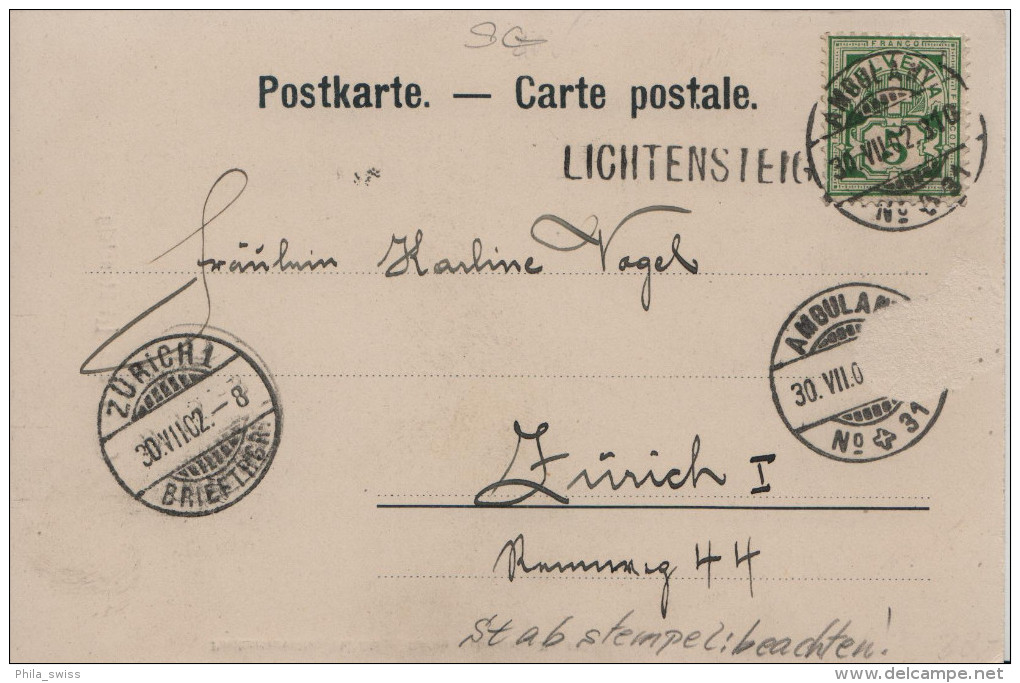 SG
Postkarte. — Carte postale.
FRANCO
HELVETIA
5
AMBULANT
30.VII.02. 310
Nº 31
LICHTENSTEIG
Fräulein Karline Vogel
AMBULAN
30.VII.0
Nº 31
ZÜRICH 1
30.VII.02.-8
BRIEFTRGR.
Zürich I
Rennweg 44
Stabstempel: beachten!
Phila_swiss
delcampe.net